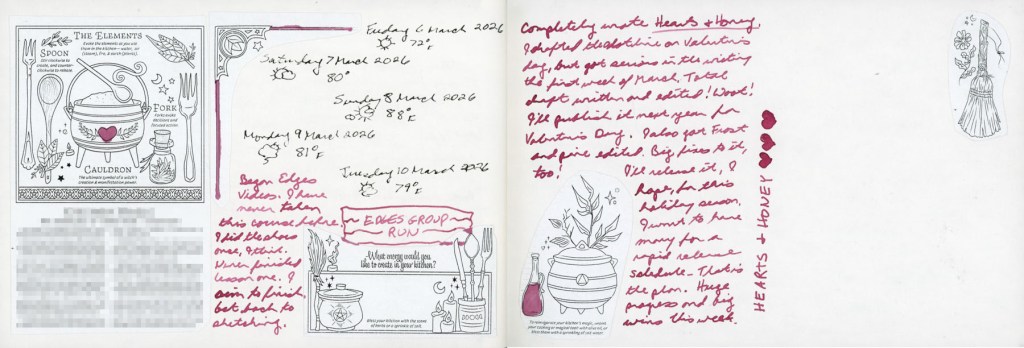 THE ELEMENTS
Evoke the elements as you use
them in the kitchen— water, air
(steam), fire, & earth (plants).
SPOON
Stir clockwise to
create, and counter-
clockwise to release.
FORK
Forks evoke
decisions and
focused action.
CAULDRON
The ultimate symbol of a witch's
creation & manifestation power.
Friday 6 March 2026
72°F
Saturday 7 March 2026
80°
Sunday 8 March 2026
88°F
Monday 9 March 2026
81°F
Tuesday 10 March 2026
79°F
Began Edges
Videos. I have
never taken
this course before.
I did the shoes
once, I think.
Never finished
lesson one. I
aim to finish,
get back to
sketching.
EDGES GROUP
RUN
What energy would you
like to create in your kitchen?
Bless your kitchen with the scent
of herbs or a sprinkle of salt.
Completely wrote Hearts & Honey.
I drafted the storyline on Valentin's
day, but got serious in the writing
the first week of March. Total
draft written and edited! Woot!
I'll publish it next year for
Valentin's Day. I also got Frost
and pine edited. Big fixes to it,
too!
I'll release it, I
hope, for this
holiday season.
I want to have
many for a
rapid release
schedule - That is
the plan. Huge
progress and big
wins this week.
HEARTS & HONEY
To energize your kitchen's magic, anoint
your cooking or magical tools with olive oil, or
bless them with a sprinkling of salt water.